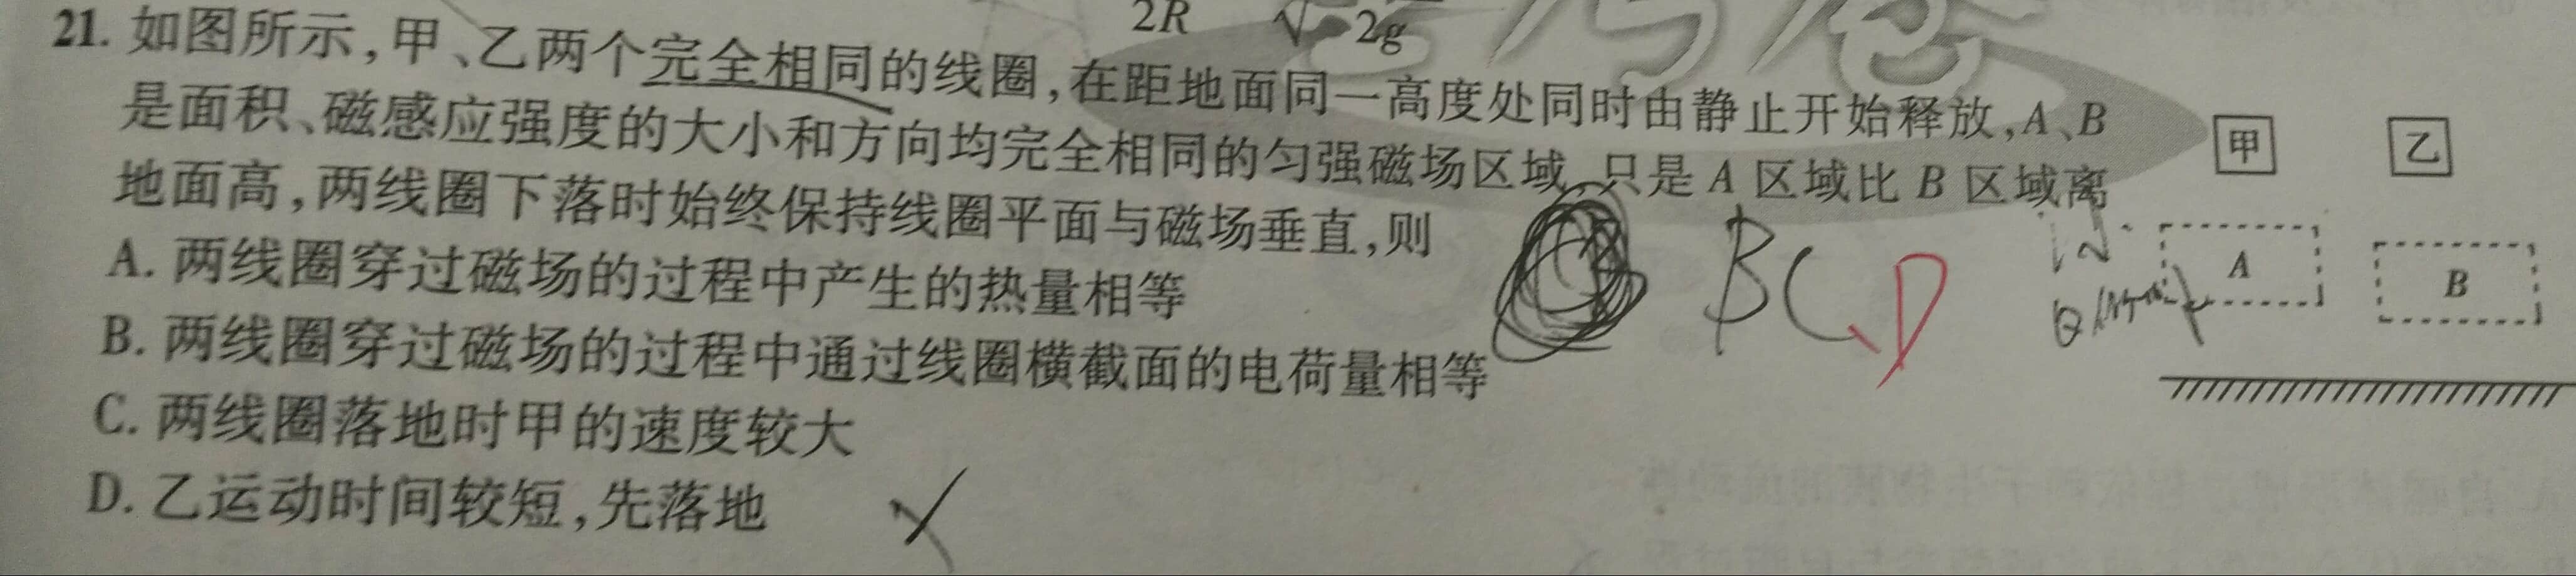 2R 2g
21. 如图所示,甲、乙两个完全相同的线圈,在距地面同一高度处同时由静止开始释放,A、B
是面积、磁感应强度的大小和方向均完全相同的匀强磁场区域,只是 A 区域比 B 区域离
地面高,两线圈下落时始终保持线圈平面与磁场垂直,则
A. 两线圈穿过磁场的过程中产生的热量相等
B. 两线圈穿过磁场的过程中通过线圈横截面的电荷量相等
C. 两线圈落地时甲的速度较大
D. 乙运动时间较短,先落地
BC、D
甲
乙
A
B